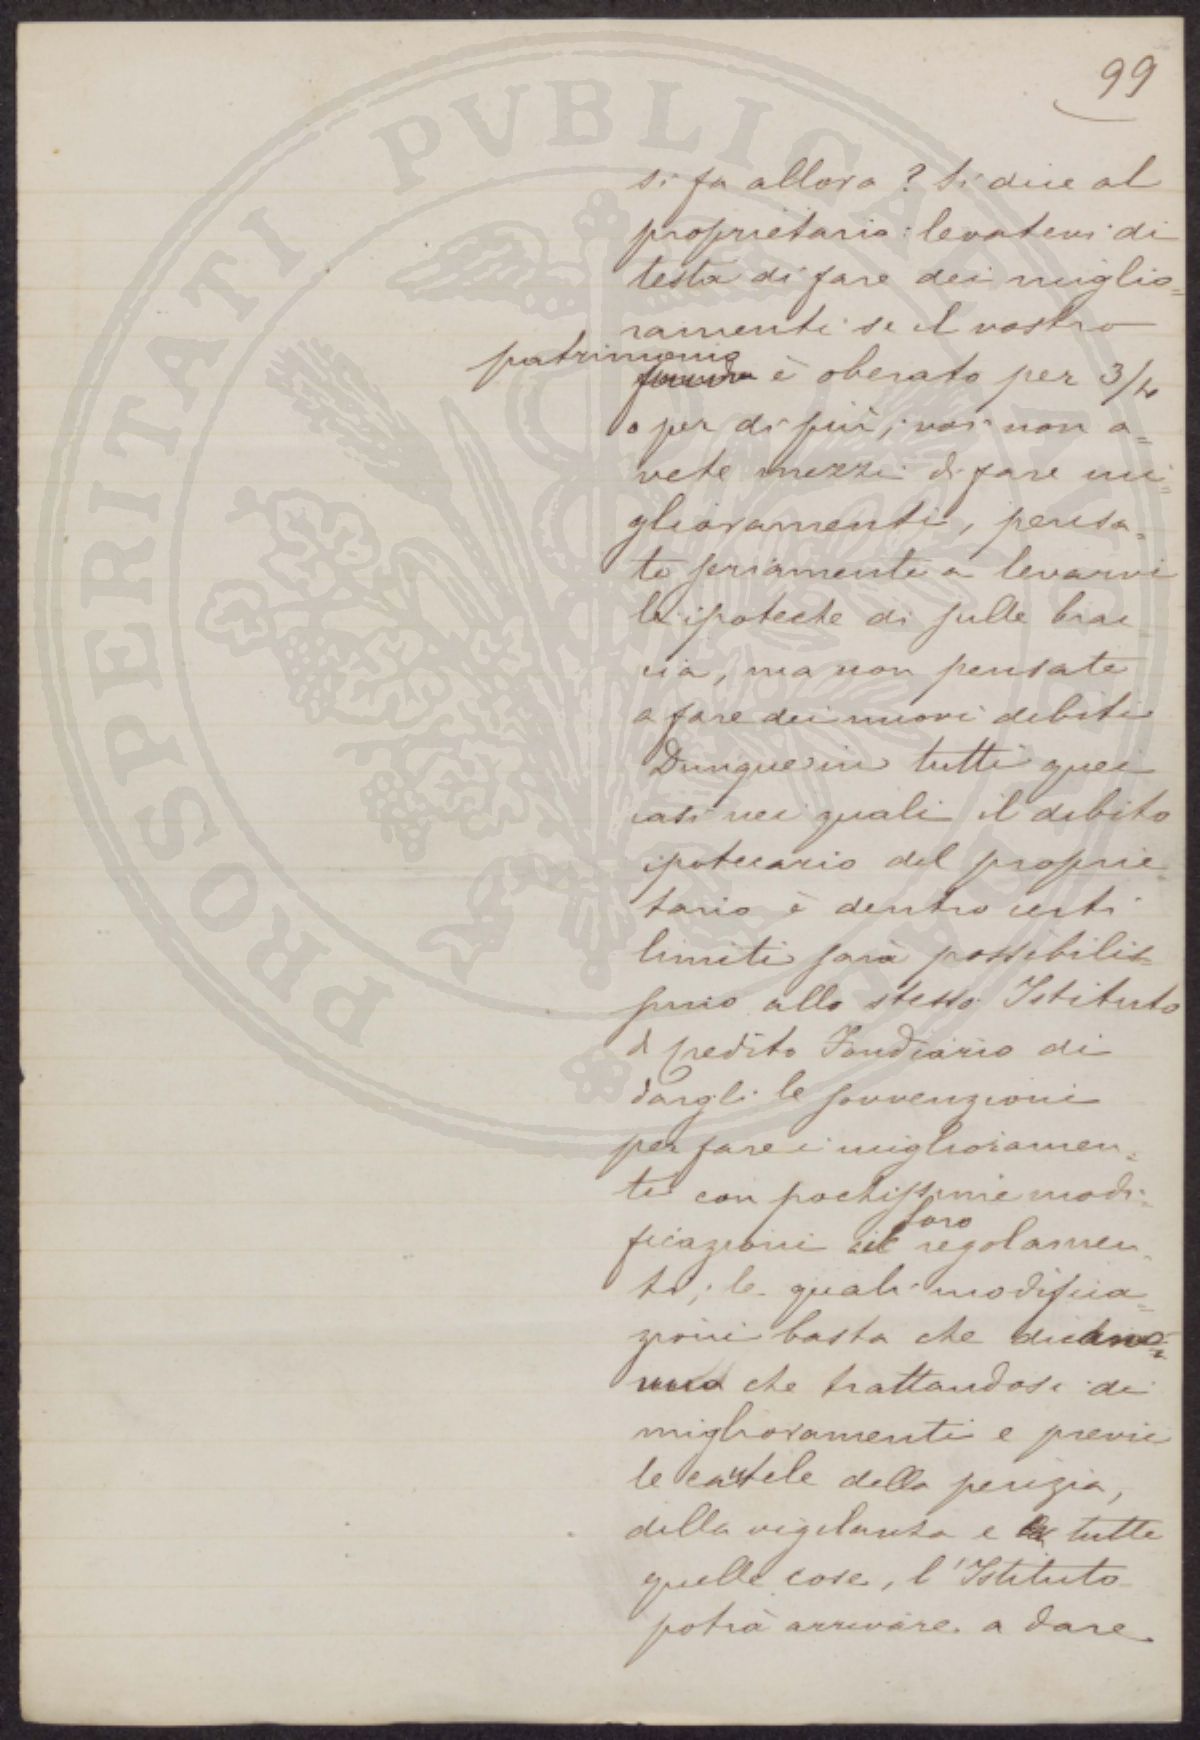 99
si fa allora? Si dice al
proprietario: levatevi di
testa di fare dei miglio=
ramenti se il vostro
patrimonio
è oberato per 3/4
o per di più; voi non a=
vete mezzi di fare mi=
glioramenti, pensa=
te seriamente a levarvi
le ipoteche di sulle brac
cia, ma non pensate
a fare dei nuovi debiti
Dunque in tutti quei
casi nei quali il debito
ipotecario del proprie=
tario è dentro certi
limiti sarà possibilis=
simo allo stesso Istituto
di Credito Fondiario di
dargli le sovvenzioni
per fare i miglioramen=
ti con pochissime modi=
loro
ficazioni ai regolamen=
ti; le quali modifica=
zioni basta che dicano
che trattandosi di
miglioramenti e previe
le cautele della perizia,
della vigilanza e tutte
quelle cose, l'Istituto
potrà arrivare a dare
PROSPERITATI PVBLICAE